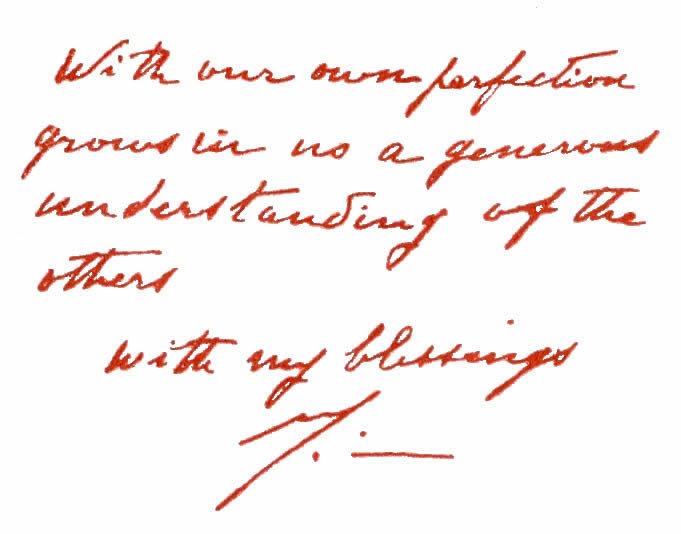 With our own perfection
grows in us a generous
understanding of the
others
with my blessings